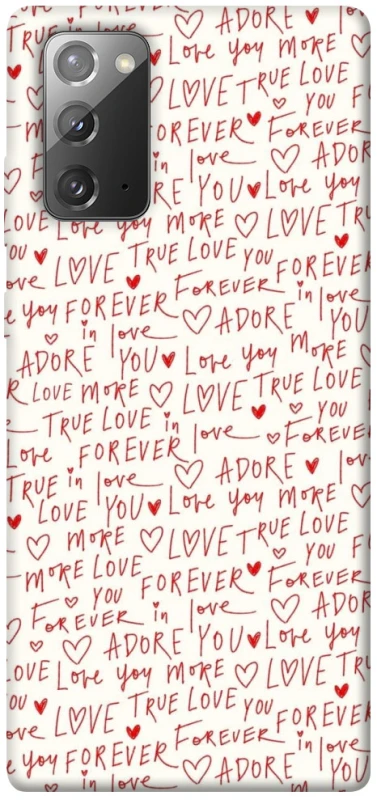 ADORE Love you MORE
TRUE in love
LOVE TRUE LOVE
YOU
FOREVER FOREVER
in love ADORE
YOU Love you
LOVE Love you MORE LOVE
TRUE LOVE YOU
LOVE FOREVER
you FOREVER FOREVER in love
in love ADORE YOU
ADORE YOU Love you MORE
LOVE MORE LOVE TRUE LOVE
TRUE LOVE in YOU
Love FOREVER love FOREVER
TRUE in love ADORE
LOVE YOU Love you MORE
MORE LOVE TRUE LOVE
MORE LOVE YOU
YOU FOREVER FOREVER
FOREVER in love ADORE
ADORE YOU Love you
LOVE Love you MORE LOVE
TRUE LOVE YOU
LOVE FOREVER
you FOREVER FOREVER in love
in love ADORE YOU